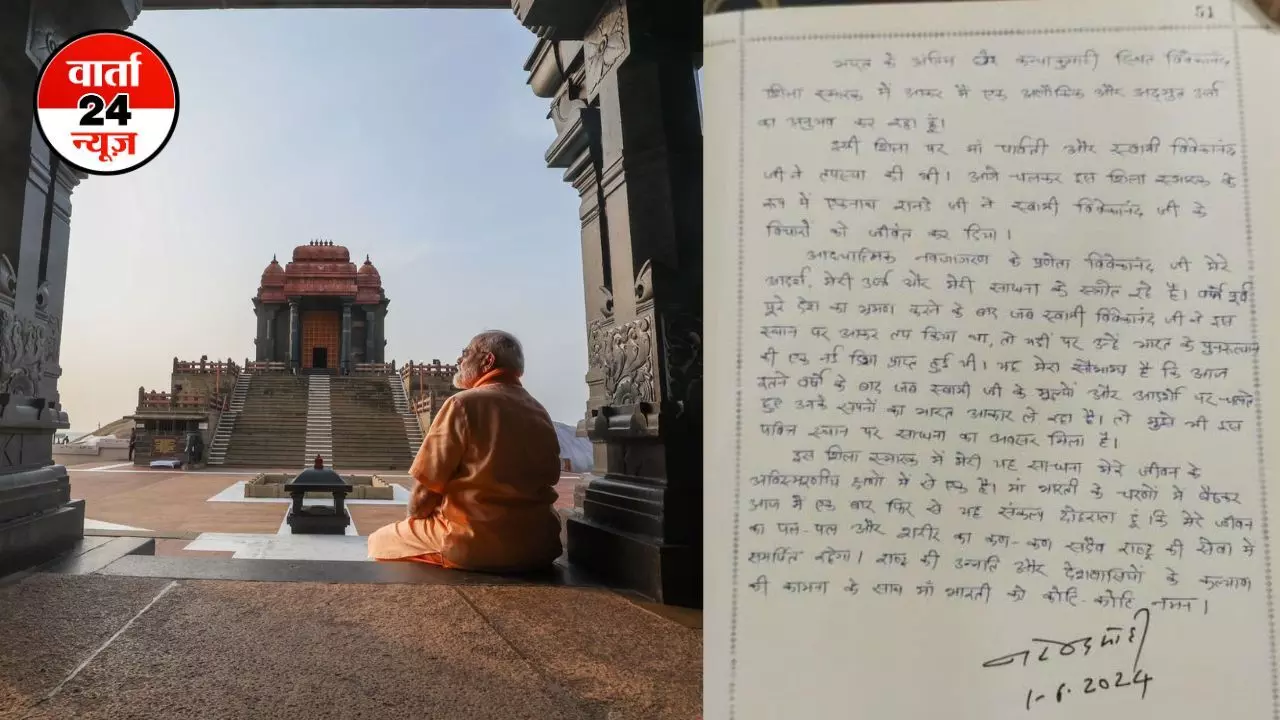 वार्ता
24
न्यूज़
51
भारत के अंतिम छोर कन्याकुमारी स्थित विवेकानंद
शिला स्मारक में आकर मैं एक अलौकिक और अद्भुत उर्जा
का अनुभव कर रहा हूं।
इसी शिला पर मां पार्वती और स्वामी विवेकानंद
जी ने तपस्या की थी। आगे चलकर इस शिला स्मारक के
रूप में एकनाथ रानडे जी ने स्वामी विवेकानंद जी के
विचारों को जीवंत कर दिया।
आध्यात्मिक नवजागरण के प्रणेता विवेकानंद जी मेरे
आदर्श, मेरी उर्जा और मेरी साधना के स्त्रोत रहे है। वर्षों पूर्व
पूरे देश का भ्रमण करने के बाद जब स्वामी विवेकानंद जी ने इस
स्थान पर आकर तप किया था, तो यहीं पर उन्हें भारत के पुनरुत्थान
की एक नई दिशा प्राप्त हुई थी। यह मेरा सौभाग्य है कि आज
इतने वर्षों के बाद जब स्वामी जी के मूल्यों और आदर्शों पर चलते
हुए उनके सपनों का भारत आकार ले रहा है। तो मुझे भी इस
पवित्र स्थान पर साधना का अवसर मिला है।
इस शिला स्मारक में मेरी यह साधना मेरे जीवन के
अविस्मरणीय क्षणों में से एक है। मां भारती के चरणों में बैठकर
आज मैं एक बार फिर से यह संकल्प दोहराता हूं। कि मेरे जीवन
का पल-पल और शरीर का कण-कण सदैव राष्ट्र की सेवा में
समर्पित रहेगा। राष्ट्र की उन्नति और देशवासियों के कल्याण
की कामना के साथ मां भारती को कोटि-कोटि नमन।
नरेन्द्र मोदी
1-6-2024